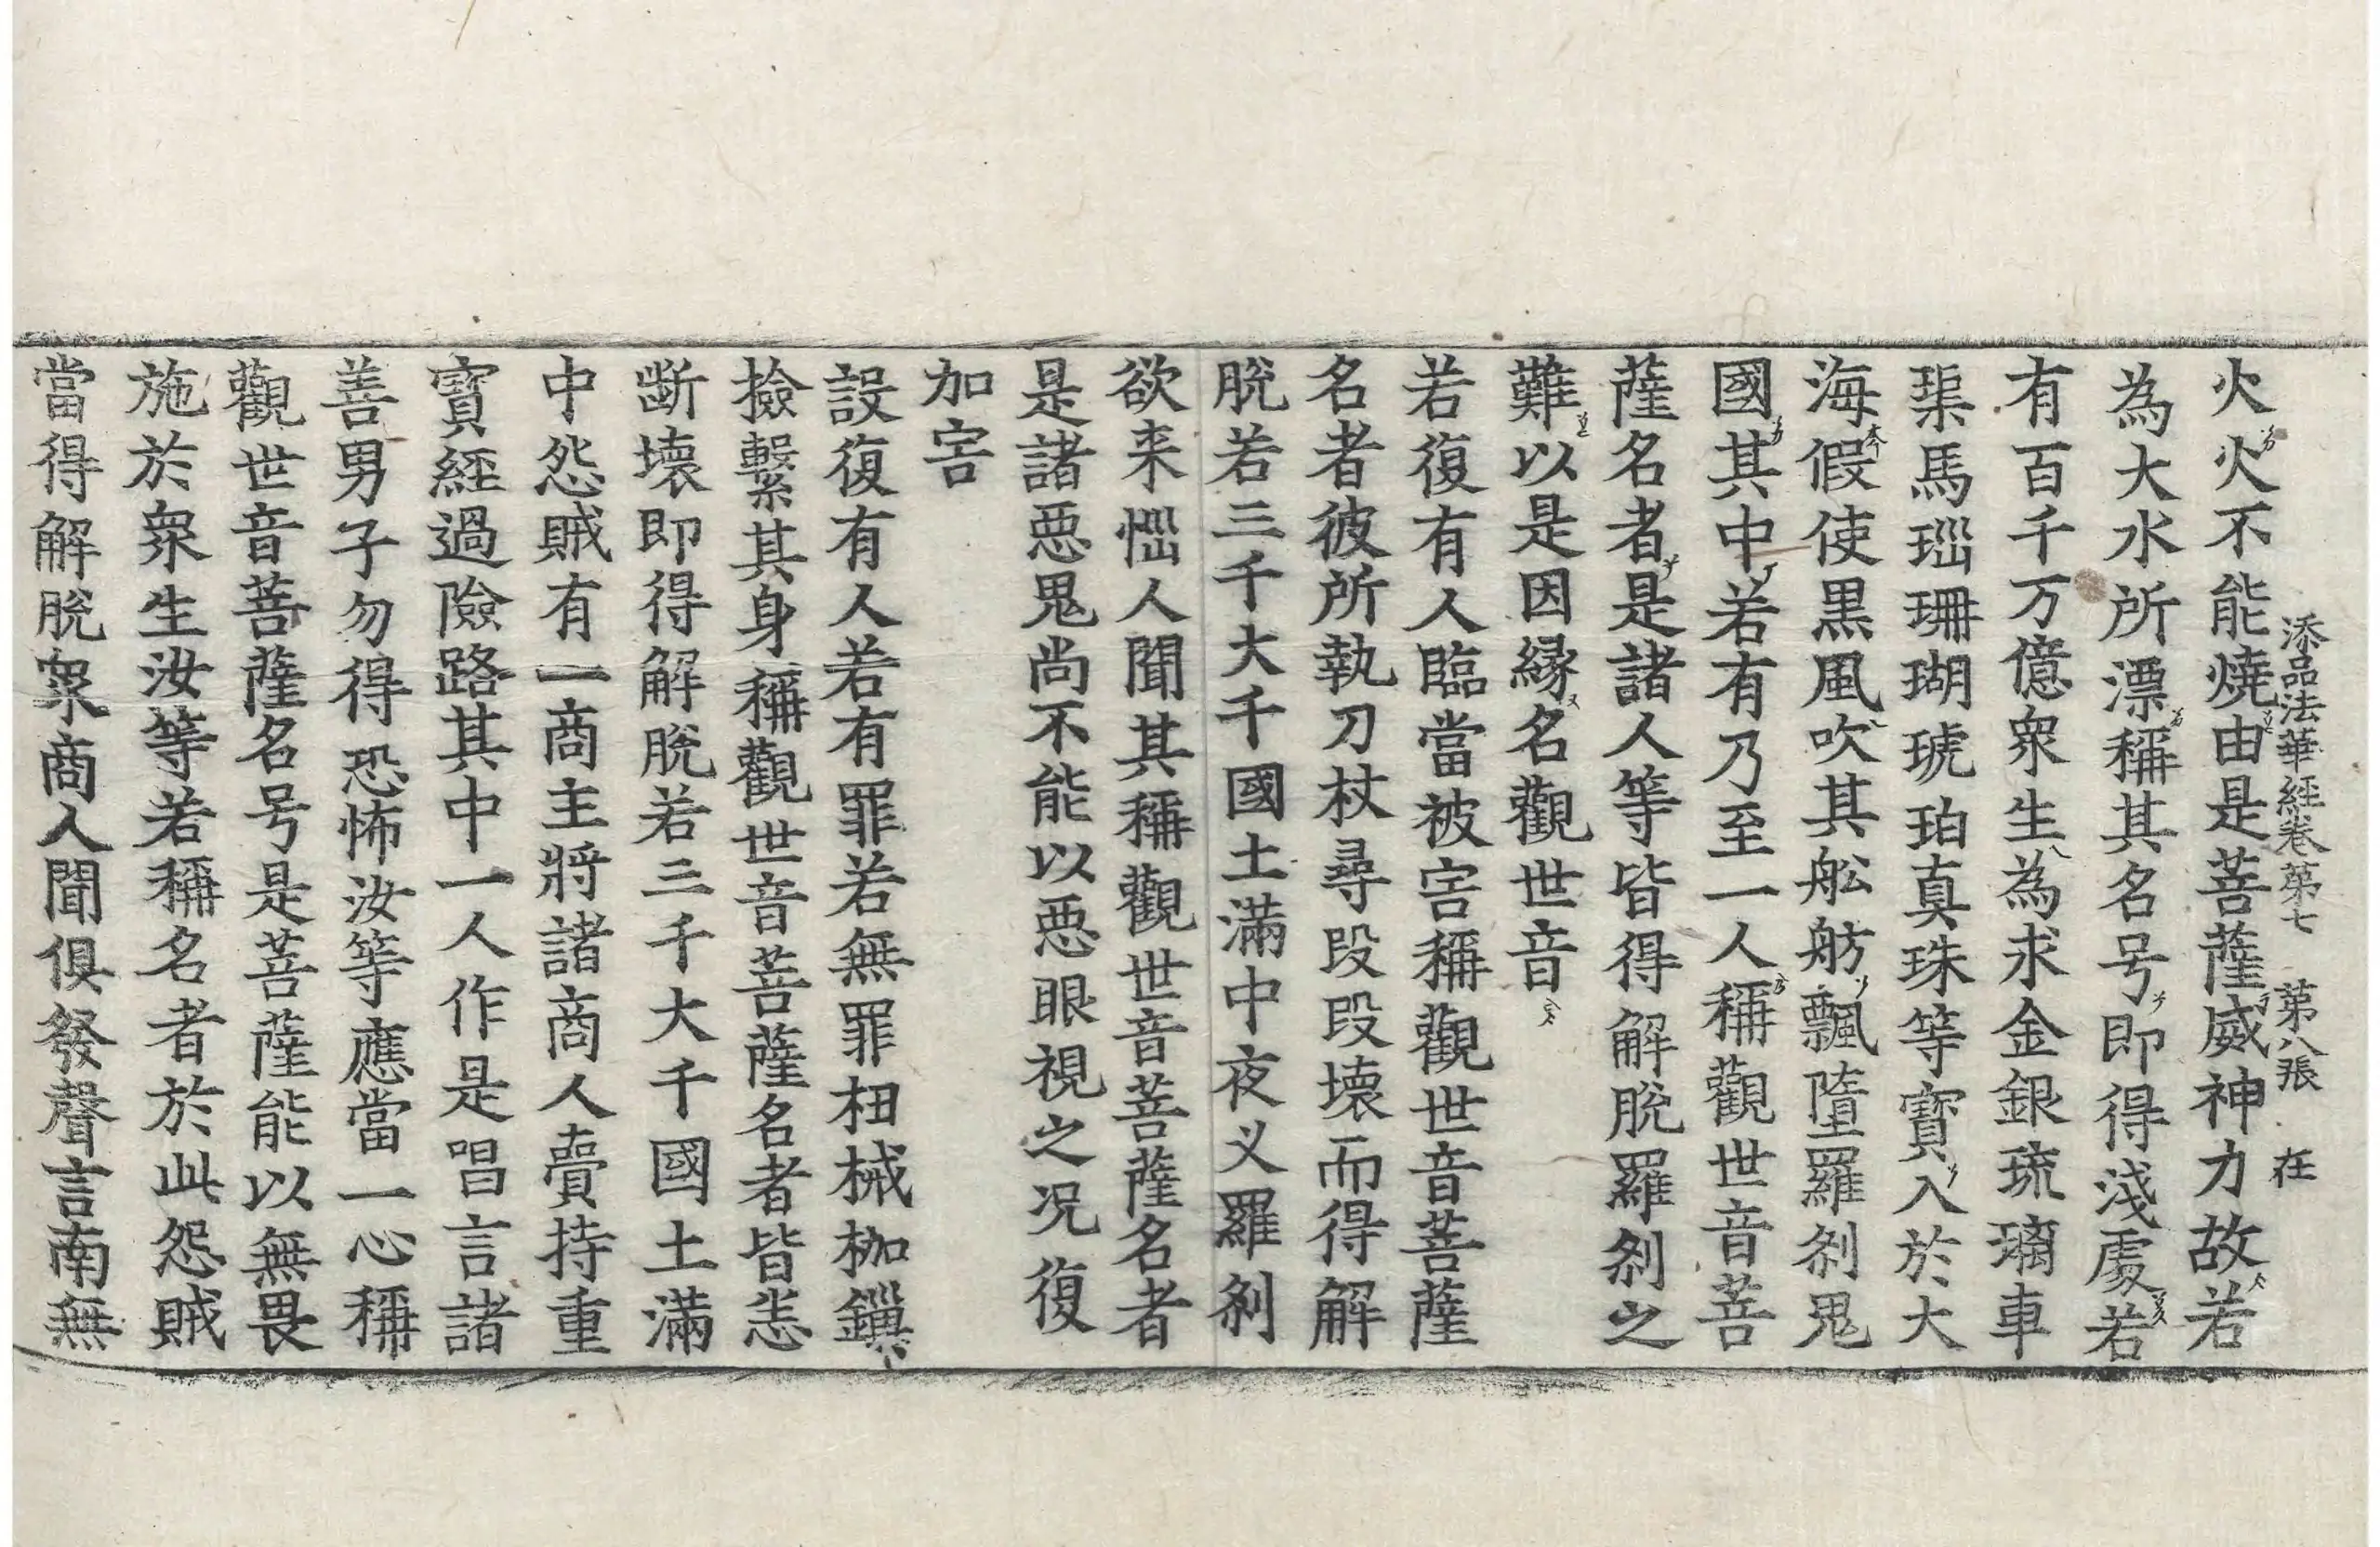 添品法華經卷第七 第八張 在
火火不能燒由是菩薩威神力故若
為大水所漂稱其名号即得淺處若
有百千万億衆生為求金銀琉璃車
𤦲馬瑙珊瑚琥珀真珠等寳入於大
海假使黒風吹其舩舫飄墮羅刹鬼
國其中若有乃至一人稱觀世音菩
薩名者是諸人等皆得解脫羅刹之
難以是因縁名觀世音
若復有人臨當被害稱觀世音菩薩
名者彼所執刀杖尋段段壞而得解
脫若三千大千國土滿中夜义羅刹
欲来惱人聞其稱觀世音菩薩名者
是諸惡鬼尚不能以惡眼視之况復
加害
設復有人若有罪若無罪杻械枷鏁
撿繫其身稱觀世音菩薩名者皆悉
断壞即得解脫若三千大千國土滿
中怨賊有一商主將諸商人賷持重
寳經過險路其中一人作是唱言諸
善男子勿得恐怖汝等應當一心稱
觀世音菩薩名号是菩薩能以無畏
施於衆生汝等若稱名者於此怨賊
當得解脫衆商人聞俱發聲言南無